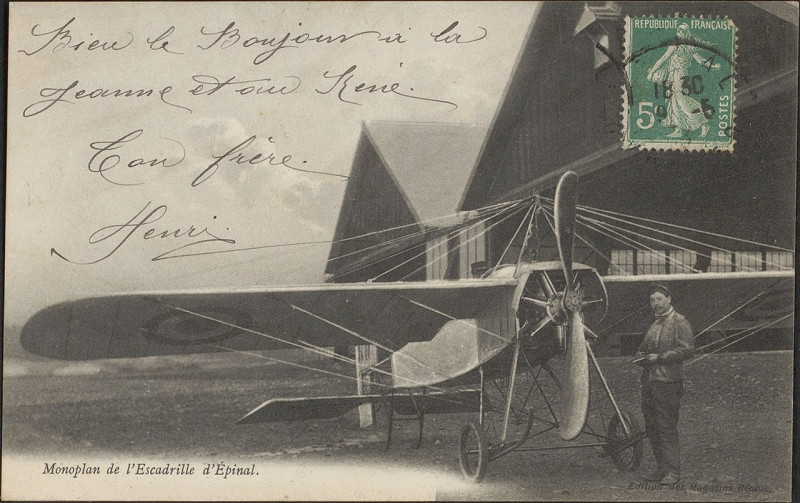 Bien le Bonjour à la
Jeanne et au René.
Ton frère.
Henri.
REPUBLIQUE FRANÇAISE
5c
POSTES
18 30
9 - 5
Monoplan de l'Escadrille d'Épinal.
Edition des Magasins Réunis.